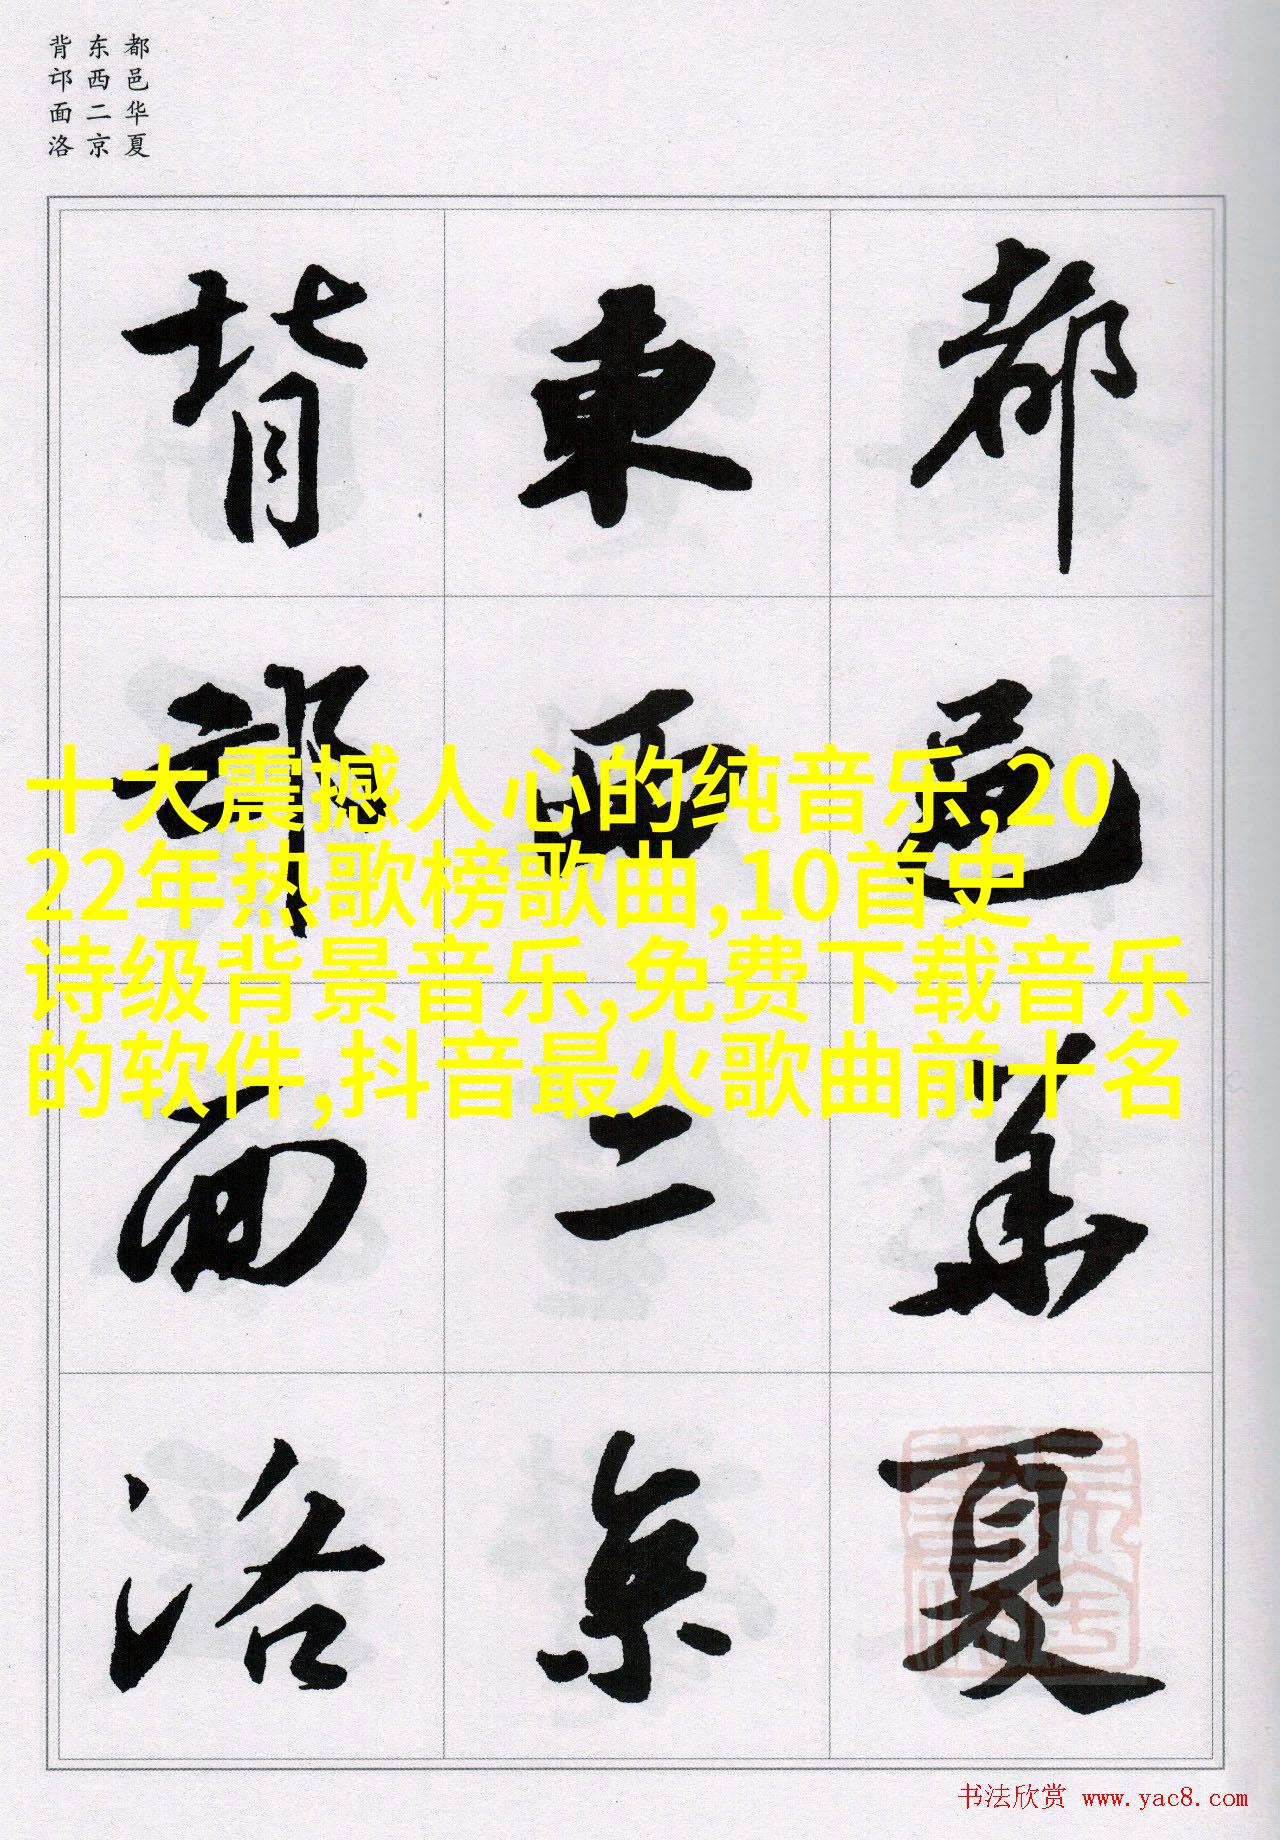 都邑华夏
东西二京
背邙面洛
都邑華夏
東西二京
背邙面洛
十大震撼人心的纯音乐,20
22年热歌榜歌曲,10首史
诗级背景音乐,免费下载音乐
的软件,抖音最火歌曲前十名
书法欣赏 www.yac8.com